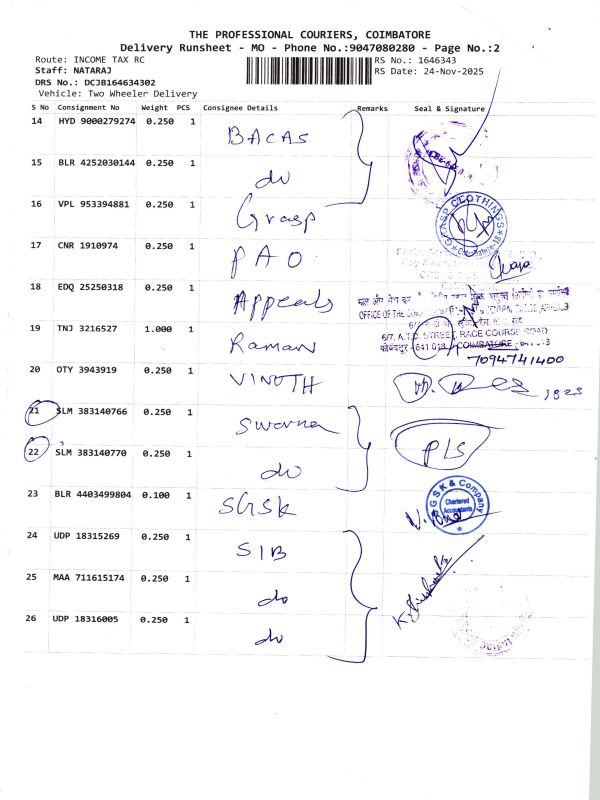 THE PROFESSIONAL COURIERS, COIMBATORE
Delivery Runsheet - MO - Phone No.:9047080280 - Page No.:2
Route: INCOME TAX RC
RS No.: 1646343
Staff: NATARAJ
RS Date: 24-Nov-2025
DRS No.: DCJB164634302
Vehicle: Two Wheeler Delivery
S No Consignment No Weight PCS Consignee Details Remarks Seal & Signature
14 HYD 9000279274 0.250 1 BACAS
15 BLR 4252030144 0.250 1 do
16 VPL 953394881 0.250 1 Grasp
GRASP CLOTHINGS
17 CNR 1910974 0.250 1 PAO
18 EDQ 25250318 0.250 1 Appeals
OFFICE OF THE
19 TNJ 3216527 1.000 1 Raman
6/7, A.T.D. STREET, RACE COURSE ROAD
COIMBATORE
7094741400
20 OTY 3943919 0.250 1 VINOTH
21 SLM 383140766 0.250 1 Swarna
22 SLM 383140770 0.250 1 do
PLS
23 BLR 4403499804 0.100 1 SGSK
GSK & Company
Chartered
Accountants
24 UDP 18315269 0.250 1 SIB
25 MAA 711615174 0.250 1 do
26 UDP 18316005 0.250 1 do